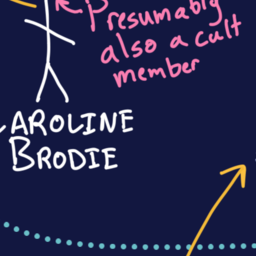 Presumably
also a cult
member
CAROLINE
BRODIE